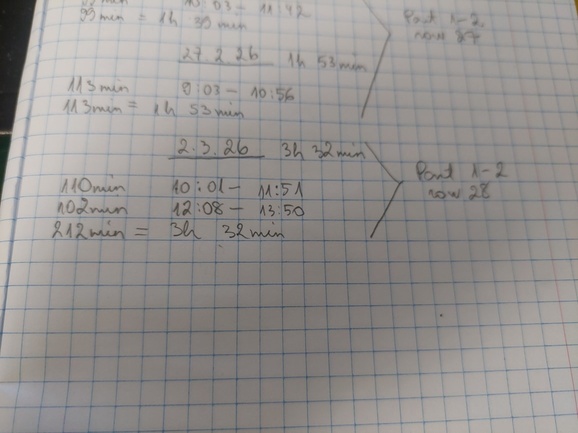 10:03 - 11:42
99min = 1h 39min
Part 1-2
row 27
27.2.26 1h 53min
113min 9:03 - 10:56
113min = 1h 53min
2.3.26 3h 32min
Part 1-2
row 28
110min 10:01 - 11:51
102min 12:08 - 13:50
212min = 3h 32min